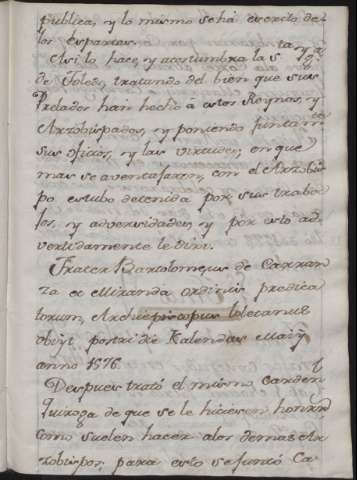 publica, y lo mismo se há escrito de
los espartas.
Asi lo hace, y acostumbra la S.ta Yg.ª
de Toledo, tratando del bien que sus
Prelados han hecho à estos Reynos, y
Arzobispados, y poniendo juntam.te
sus oficios, y las virtudes, en que
mas se aventajaron, con el Arzobis-
po estubo detenida por sus traba-
jos, y adversidades, y por esto ad-
vertidamente le
Frater Bartolomeus de Carran-
za et Miranda ordinis predica
torum, Archiepiscopus toletanus
obijt postridie Kalendas Maij
anno 1576.
Despues trató el mismo Carden.l
Quiroga de que se le hiciesen honrras
como suelen hacer a los demas Ar-
zobispos, para esto se juntó Ca-